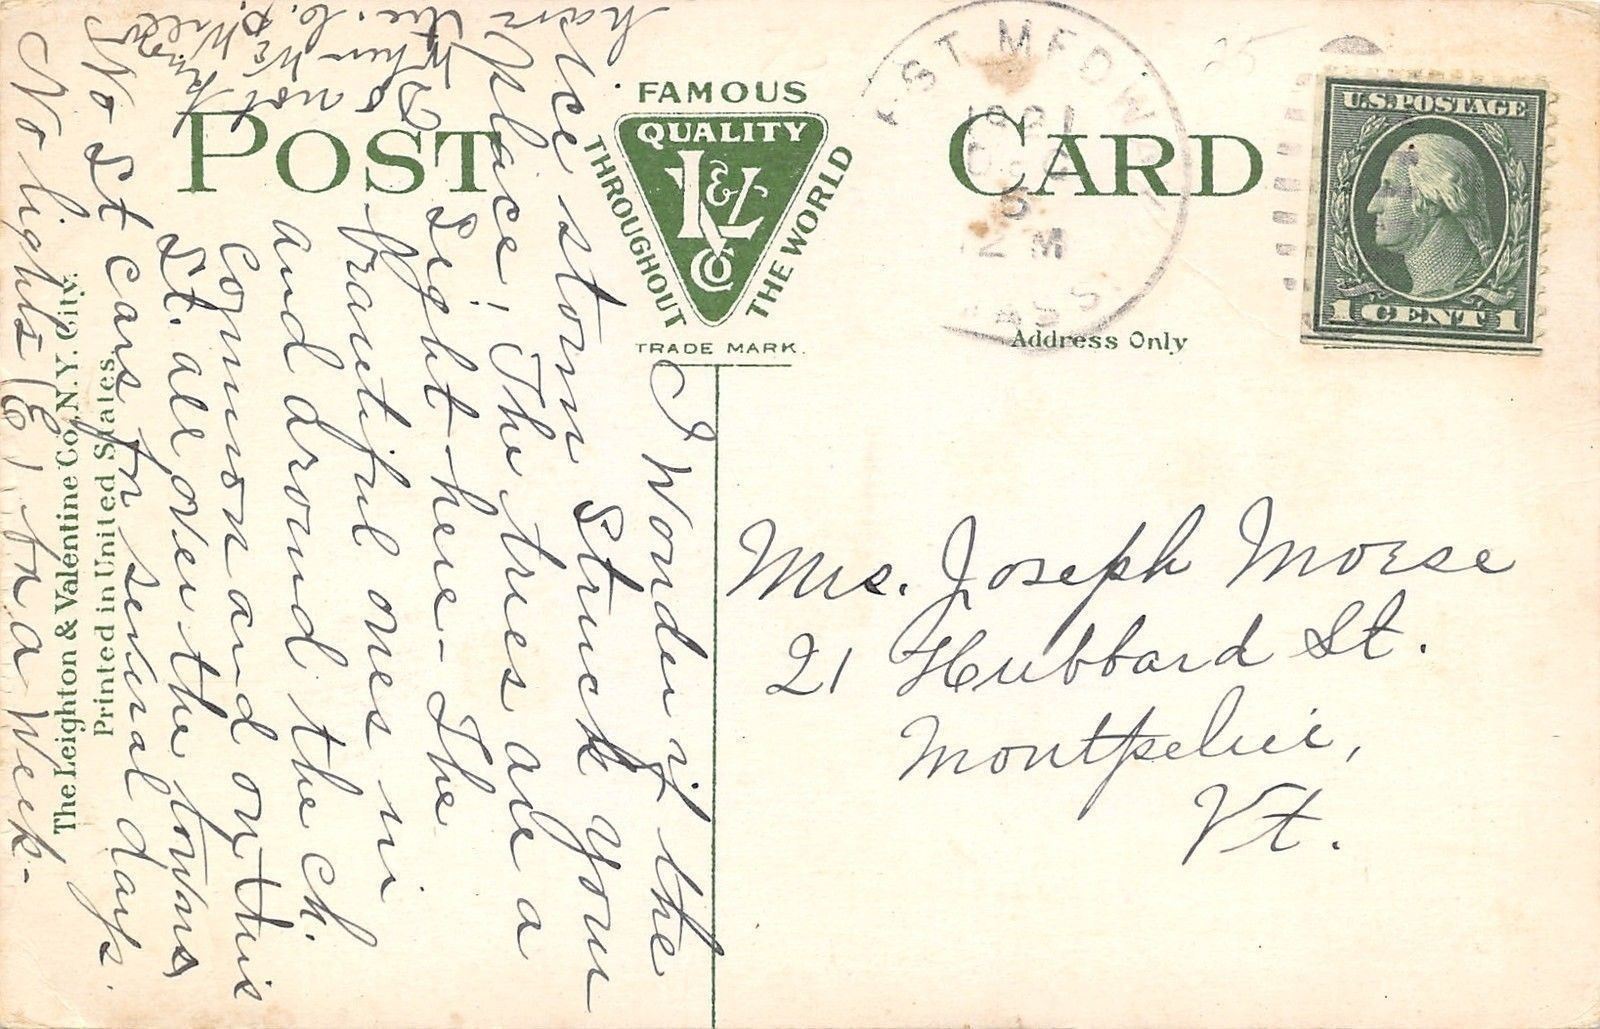 POST CARD
FAMOUS
QUALITY
L & V Co
THROUGHOUT
THE WORLD
TRADE MARK.
Address Only
1921
DEC
5
12 M
MASS.
U.S. POSTAGE
1 CENT 1
The Leighton & Valentine Co., N.Y. City.
Printed in United States.
I Wonder if the
Ice storm Struck your
place, The trees are a
Sight here - The
brautiful ones in
and dround the ch.
Common and on this
St. all over the towns
No St cars for several days.
No lights (E) for a Week -
Do not know
When We
have the
Mrs. Joseph Morse
21 Hubbard St.
Montpelier,
Vt.